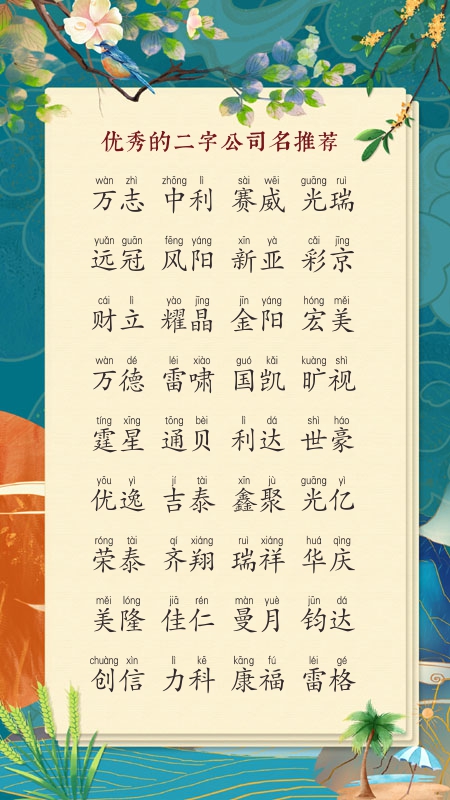 优秀的二字公司名推荐
wàn zhì zhōng lì sài wēi guāng ruì
万志 中利 赛威 光瑞
yuǎn guān fēng yáng xīn yà cǎi jīng
远冠 风阳 新亚 彩京
cái lì yào jīng jīn yáng hóng měi
财立 耀晶 金阳 宏美
wàn dé léi xiào guó kǎi kuàng shì
万德 雷啸 国凯 旷视
tíng xīng tōng bèi lì dá shì háo
霆星 通贝 利达 世豪
yōu yì jí tài xīn jù guāng yì
优逸 吉泰 鑫聚 光亿
róng tài qí xiáng ruì xiáng huá qìng
荣泰 齐翔 瑞祥 华庆
měi lóng jiā rén màn yuè jūn dá
美隆 佳仁 曼月 钧达
chuàng xìn lì kē kāng fú léi gé
创信 力科 康福 雷格